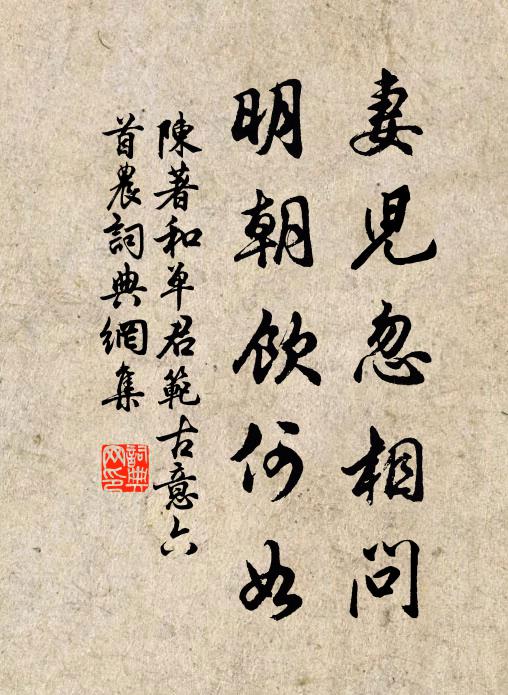 妻児忽相問
明朝飲何如
陳著和单君範古意六
首農詞典網集
詞典网印